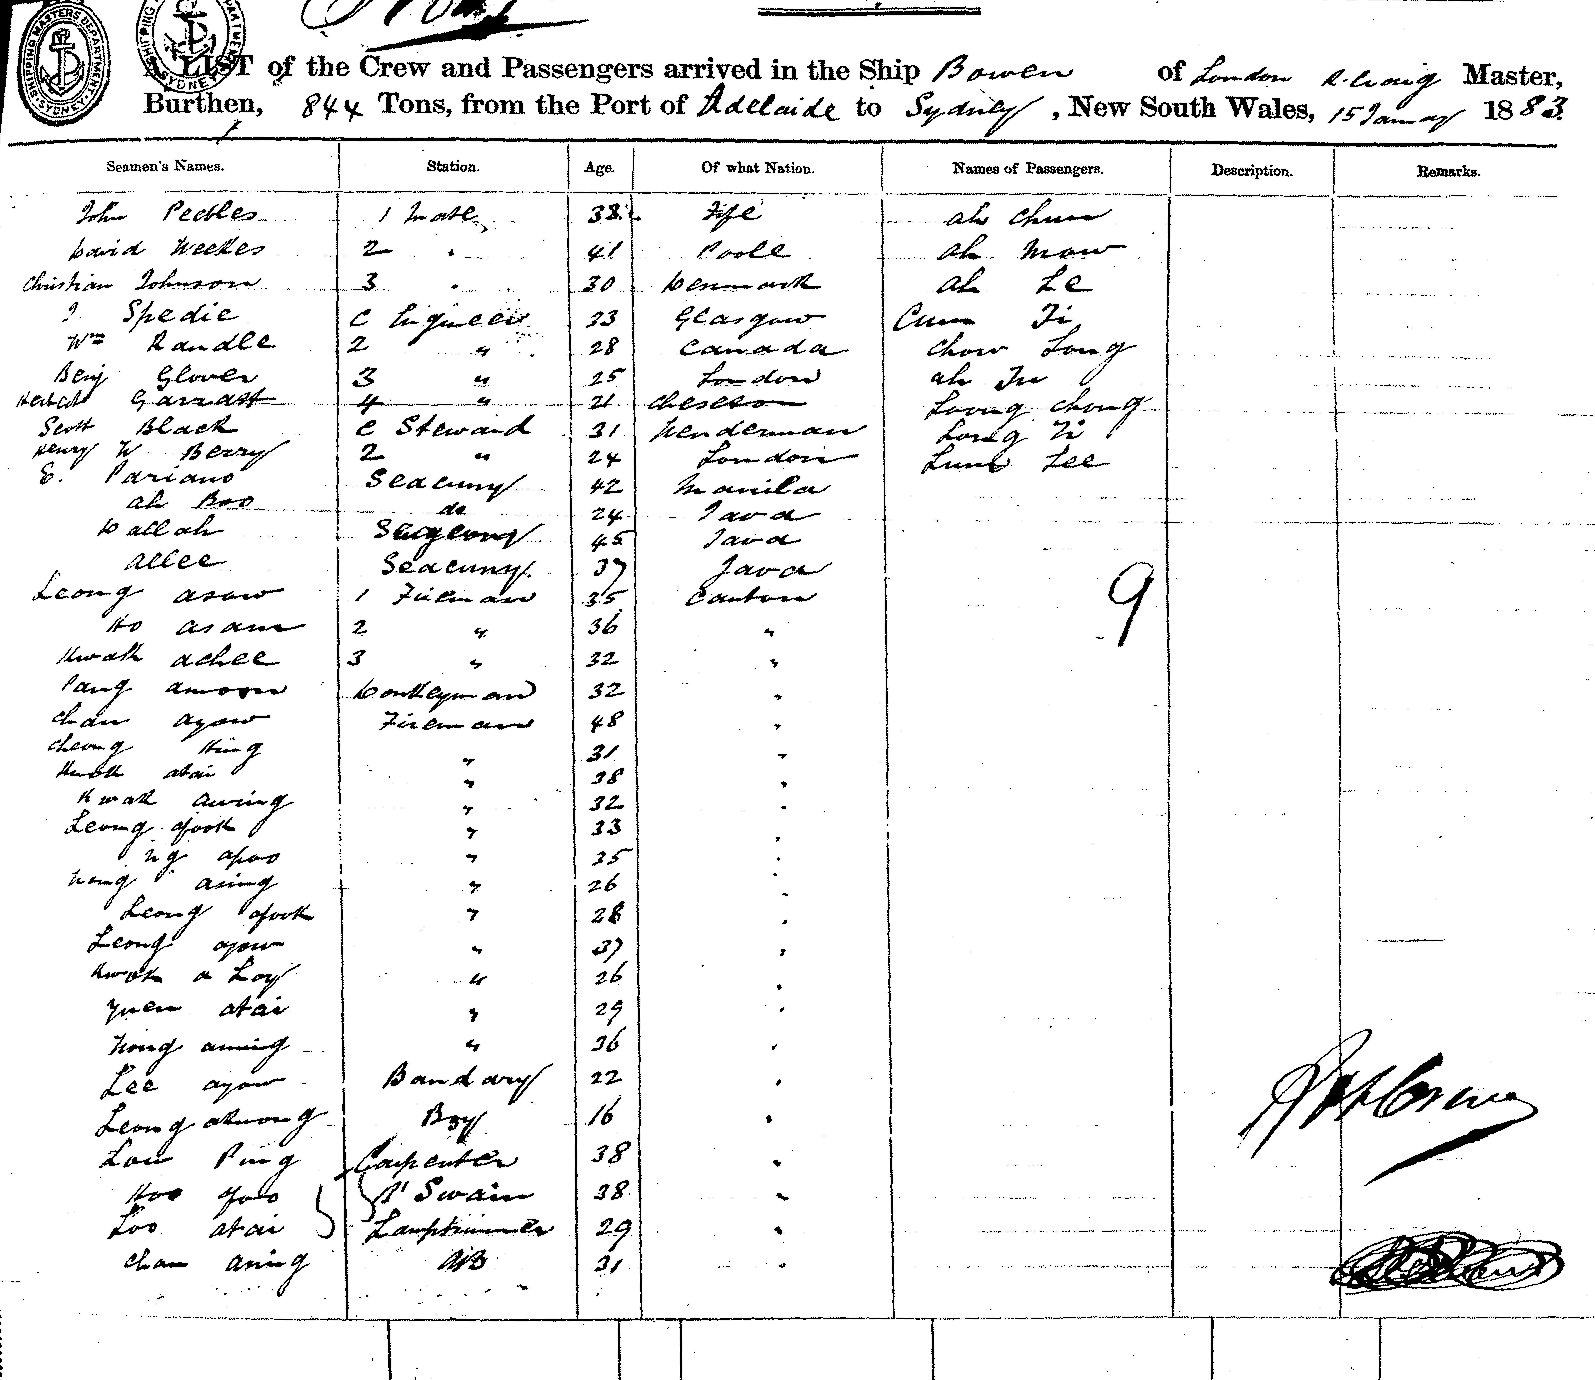 A LIST of the Crew and Passengers arrived in the Ship Bowen of London R. Craig Master,
Burthen, 844 Tons, from the Port of Adelaide to Sydney, New South Wales, 15 January 1883.
Seamen's Names. Station. Age. Of what Nation. Names of Passengers. Description. Remarks.
John Peebles 1 Mate 38 Fife Ah Chun
David Weekes 2 " 41 Poole Ah Mow
Christian Johnson 3 " 30 Denmark Ah Le
J Spedie C Engineer 33 Glasgow Cum Ti
Wm Randle 2 " 28 Canada Chow Long
Benj Glover 3 " 25 London Ah
Garratt 4 " 21 Loong Chong
Scott Black C Steward 31 Long Ti
Henry W Berry 2 " 24 London Lum Lee
E. Pariano Seacuny 42 Manila
Ah Boo do 24 Java
Dallah 45 Java
Allee Seacuny 37 Java
Leong Asow 1 Fireman 35 Canton
Ho Asam 2 " 36 "
Kwak Achee 3 " 32 "
Pang Amoon Donkeyman 32 "
Chan Ayow Fireman 48 "
Cheong King " 31 "
Kwok Atai " 38 "
Kwak Awing " 32 "
Leong Afook " 33 "
Ng Apoo " 35 "
Asing " 26 "
Leong Afook " 28 "
Leong Ayow " 37 "
Kwok A Loy " 26 "
Yuen Atai " 29 "
Aming " 36 "
Lee Ayow Bandary 22 "
Leong Akwong Boy 16 "
Low Ping Carpenter 38 "
Hoo Afoo Bt Swain 38 "
Loo Atai Lamptrimmer 29 "
Chan Aning AB 31 "
9